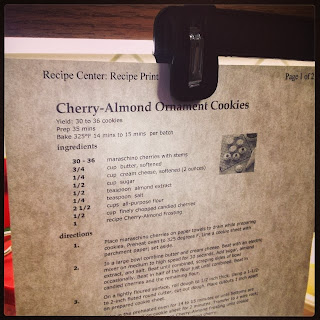 Recipe Center: Recipe Print
Page 1 of 2
Cherry-Almond Ornament Cookies
Yield: 30 to 36 cookies
Prep 35 mins
Bake 325°F 14 mins to 15 mins per batch
ingredients
30 - 36 maraschino cherries with stems
3/4 cup butter, softened
1/4 cup cream cheese, softened (2 ounces)
1/2 cup sugar
1/2 teaspoon almond extract
1/4 teaspoon salt
2 1/2 cups all-purpose flour
1/2 cup finely chopped candied cherries
1 recipe Cherry-Almond Frosting
directions
1. Place maraschino cherries on paper towels to drain while preparing
cookies. Preheat oven to 325 degrees F. Line a cookie sheet with
parchment paper; set aside.
2. In a large bowl combine butter and cream cheese. Beat with an electric
mixer on medium to high speed for 30 seconds. Add sugar, almond
extract, and salt. Beat until combined, scraping sides of bowl
occasionally. Beat in half of the flour just until combined. Beat in
candied cherries and the remaining flour.
3. On a lightly floured surface, roll dough to 1/2 inch thick. Using a 1 1/2
to 2-inch fluted round cutter,